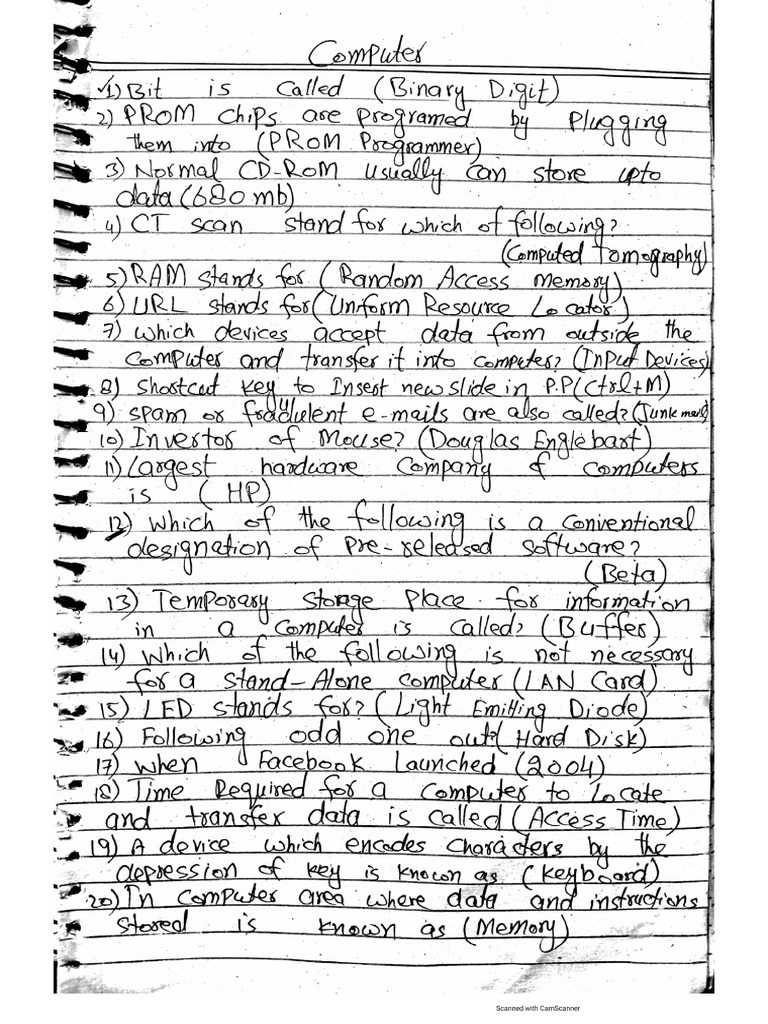 Computer
1) Bit is called (Binary Digit)
2) PROM chips are programed by plugging
them into (PROM Programmer)
3) Normal CD-ROM usually can store upto
data (680 mb)
4) CT scan stand for which of following?
(Computed Tomography)
5) RAM stands for (Random Access Memory)
6) URL stands for (Uniform Resource Locator)
7) which devices accept data from outside the
computer and transfer it into computer? (Input Devices)
8) Shortcut key to Insert new slide in P.P (Ctrl+M)
9) Spam or fradulent e-mails are also called? (Junk mail)
10) Invertor of Mouse? (Douglas Englebart)
11) Largest hardware company of computers
is (HP)
12) which of the following is a conventional
designation of pre-released software?
(Beta)
13) Temporary storage place for information
in a computer is called? (Buffer)
14) which of the following is not necessary
for a stand-Alone computer (LAN Card)
15) LED stands for? (Light Emitting Diode)
16) Following odd one out? (Hard Disk)
17) when Facebook Launched (2004)
18) Time Required for a computer to Locate
and transfer data is called (Access Time)
19) A device which encodes characters by the
depression of key is known as (keyboard)
20) In computer area where data and instructions
stored is known as (Memory)
Scanned with CamScanner